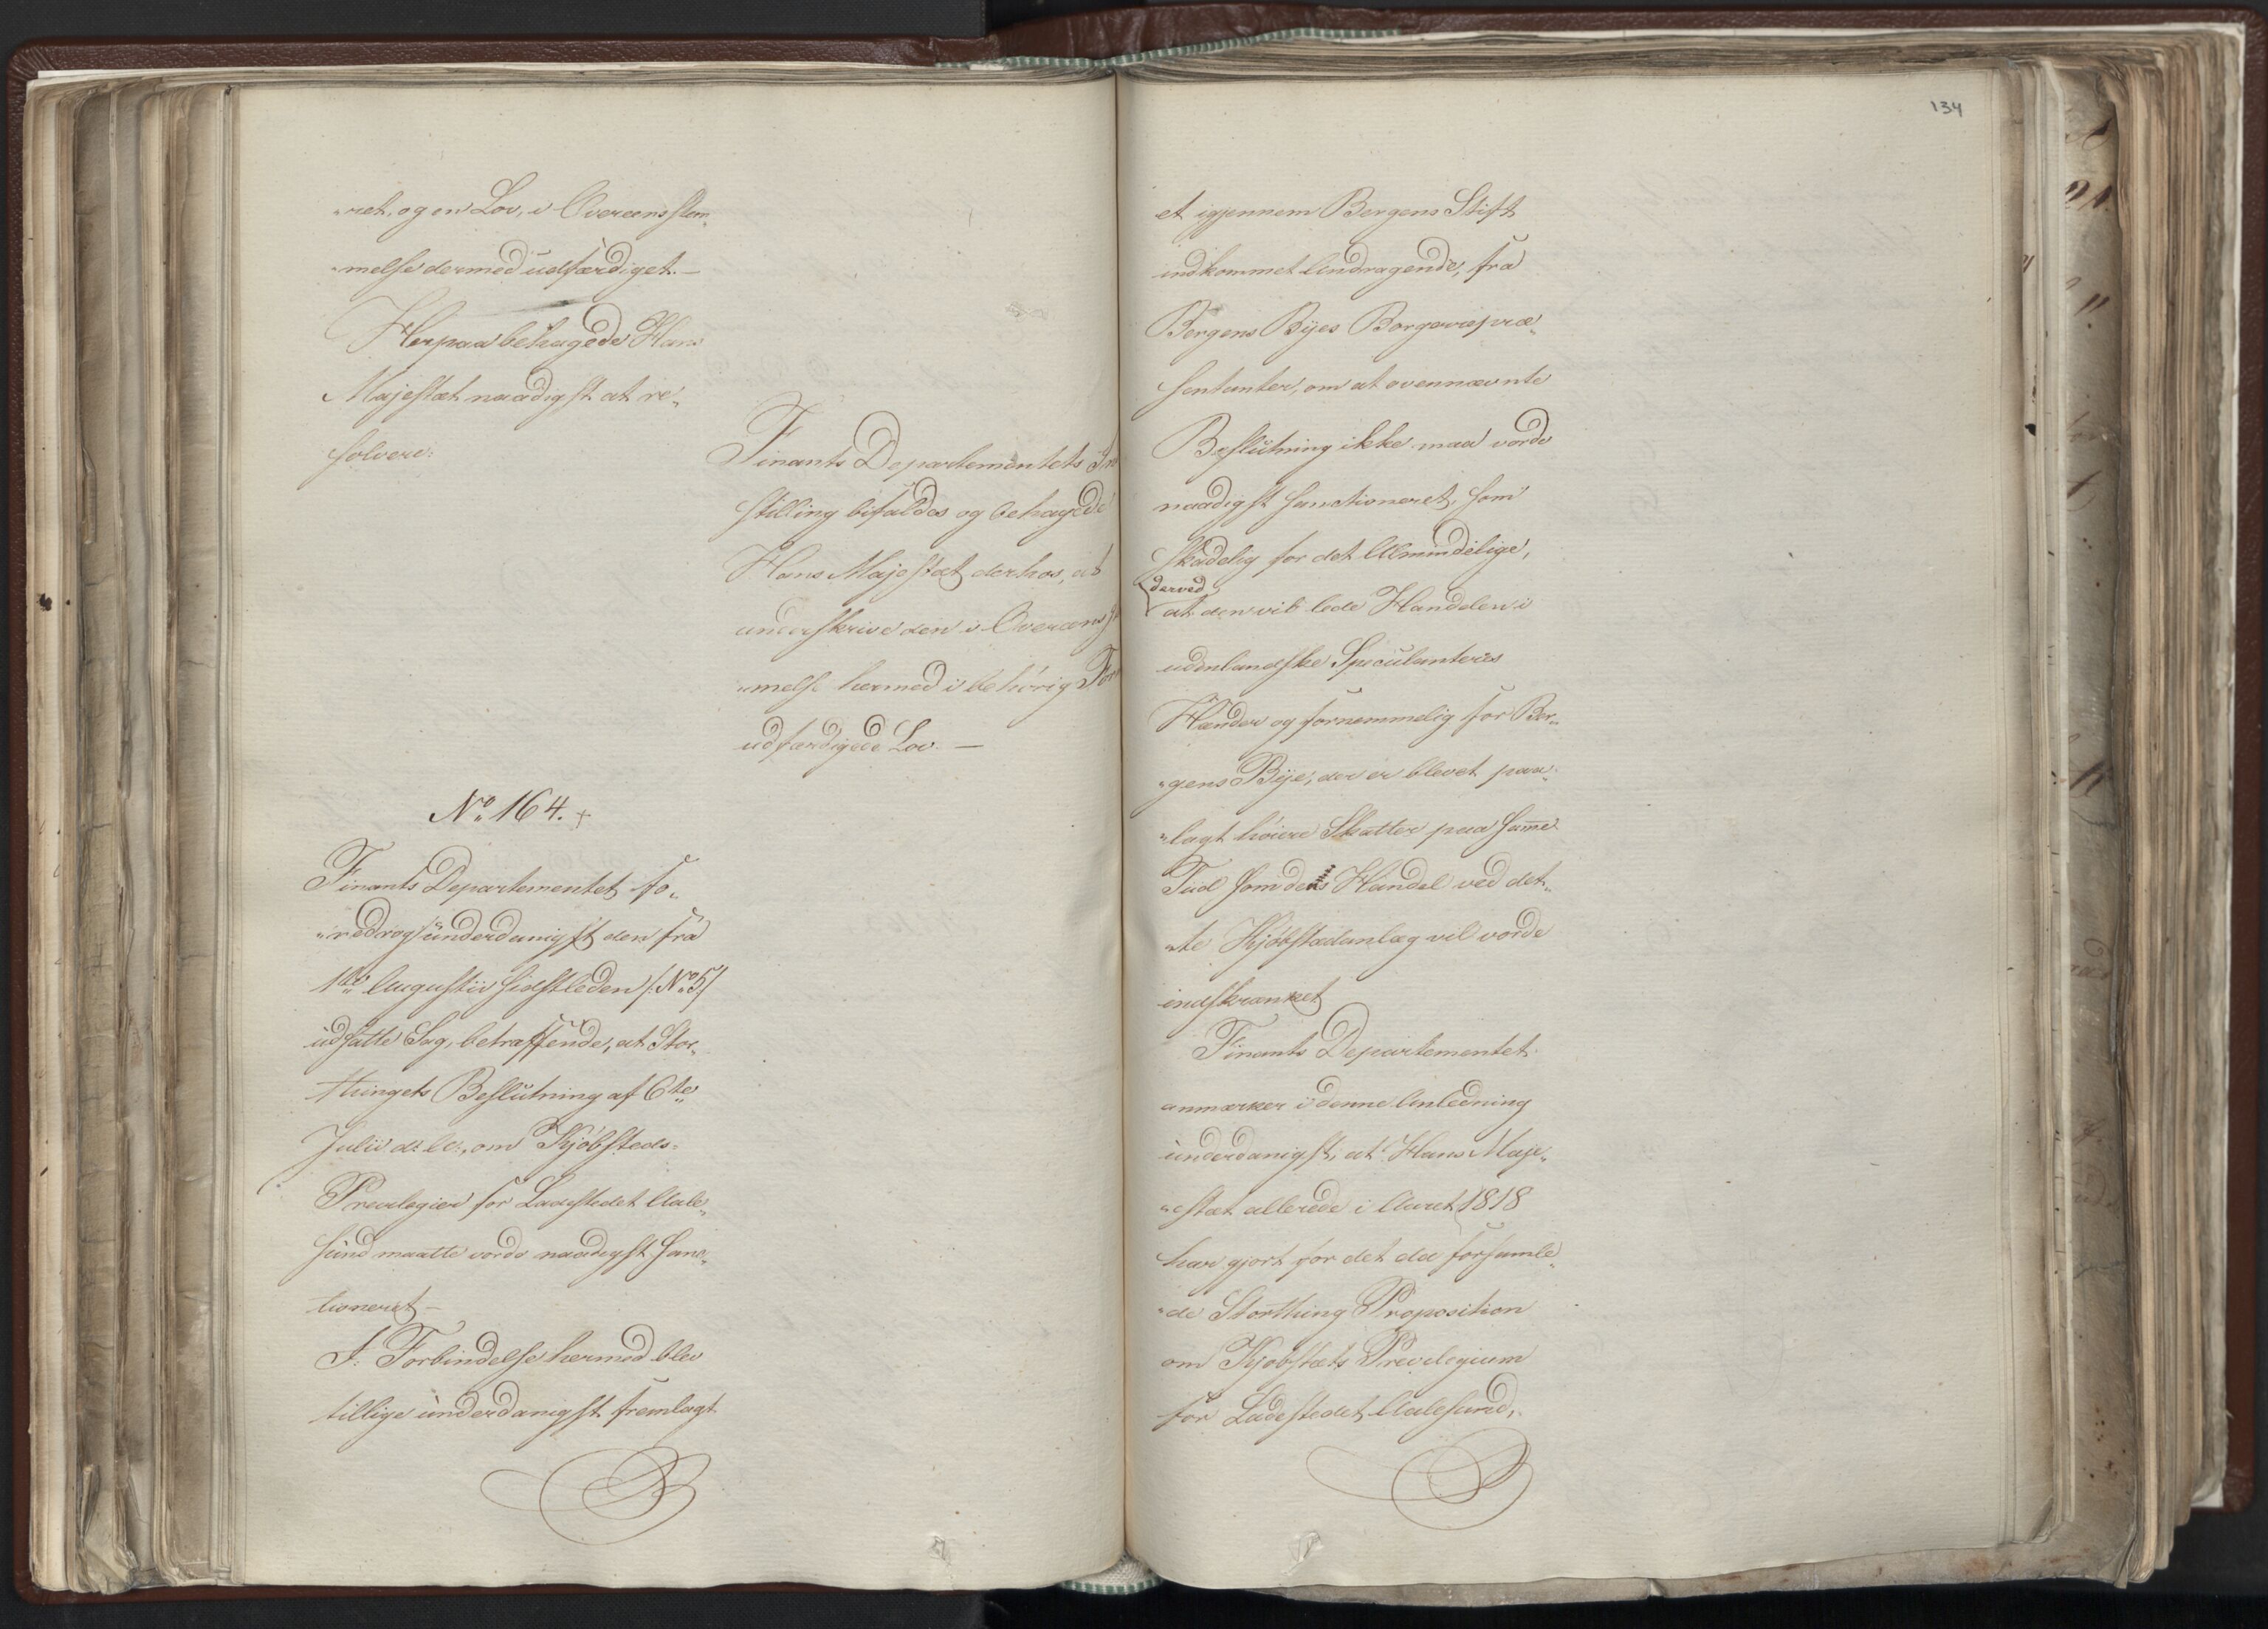 "ret, og en Lov, i Overeensstem„
"melse dermed udfærdiget. —
Herpaa behagede Hans
Majestæt naadigst at re„
solvere:
Finants Departementets In
stilling bifaldes og behagede
Hans Majestæt derhos, at
underskrive den i Overeensst
"melse hermed i behörig For
udfærdigede Lov. —
No 164. +
Finants Departementet fo„
"redrog underdanigst den fra
1te Augustii sidstleden /: No 5 /
udsatte Sag, betræffende, at Stor„
thingets Beslutning af 6te
Julii d: A:, om Kjöbsteds-
Previlegier for Ladestedet Aale„
sund maatte vorde naadigst sanc„
tioneret —
I Forbindelse hermed blev
tillige underdanigst fremlagt
134
et igjennem Bergens Stift
indkommet Andragende, fra
Bergens Byes Borgerrepræ„
sentanter, om at ovennævnte
Beslutning ikke maa vorde
naadigst sanctioneret, som
skadelig for det Almindelige,
derved
at den vil lede Handelen i
udenlandske Speculanteres
Hænder og fornemmelig for Ber„
"gens Bye, der er blevet paa„
"lagt höiere Skatter paa samme
Tid som dens Handel ved det„
"te Kjöbstadanlæg vil vorde
indskrænket
Finants Departementet
anmærker i denne Anledning
underdanigst, at Hans Maje„
"estæt allerede i Aaret 1818
har gjort for det da forsamle„
"de Storthing Proposition
om Kjøbstæds Previlegium
for Ladestedet Aalesund,